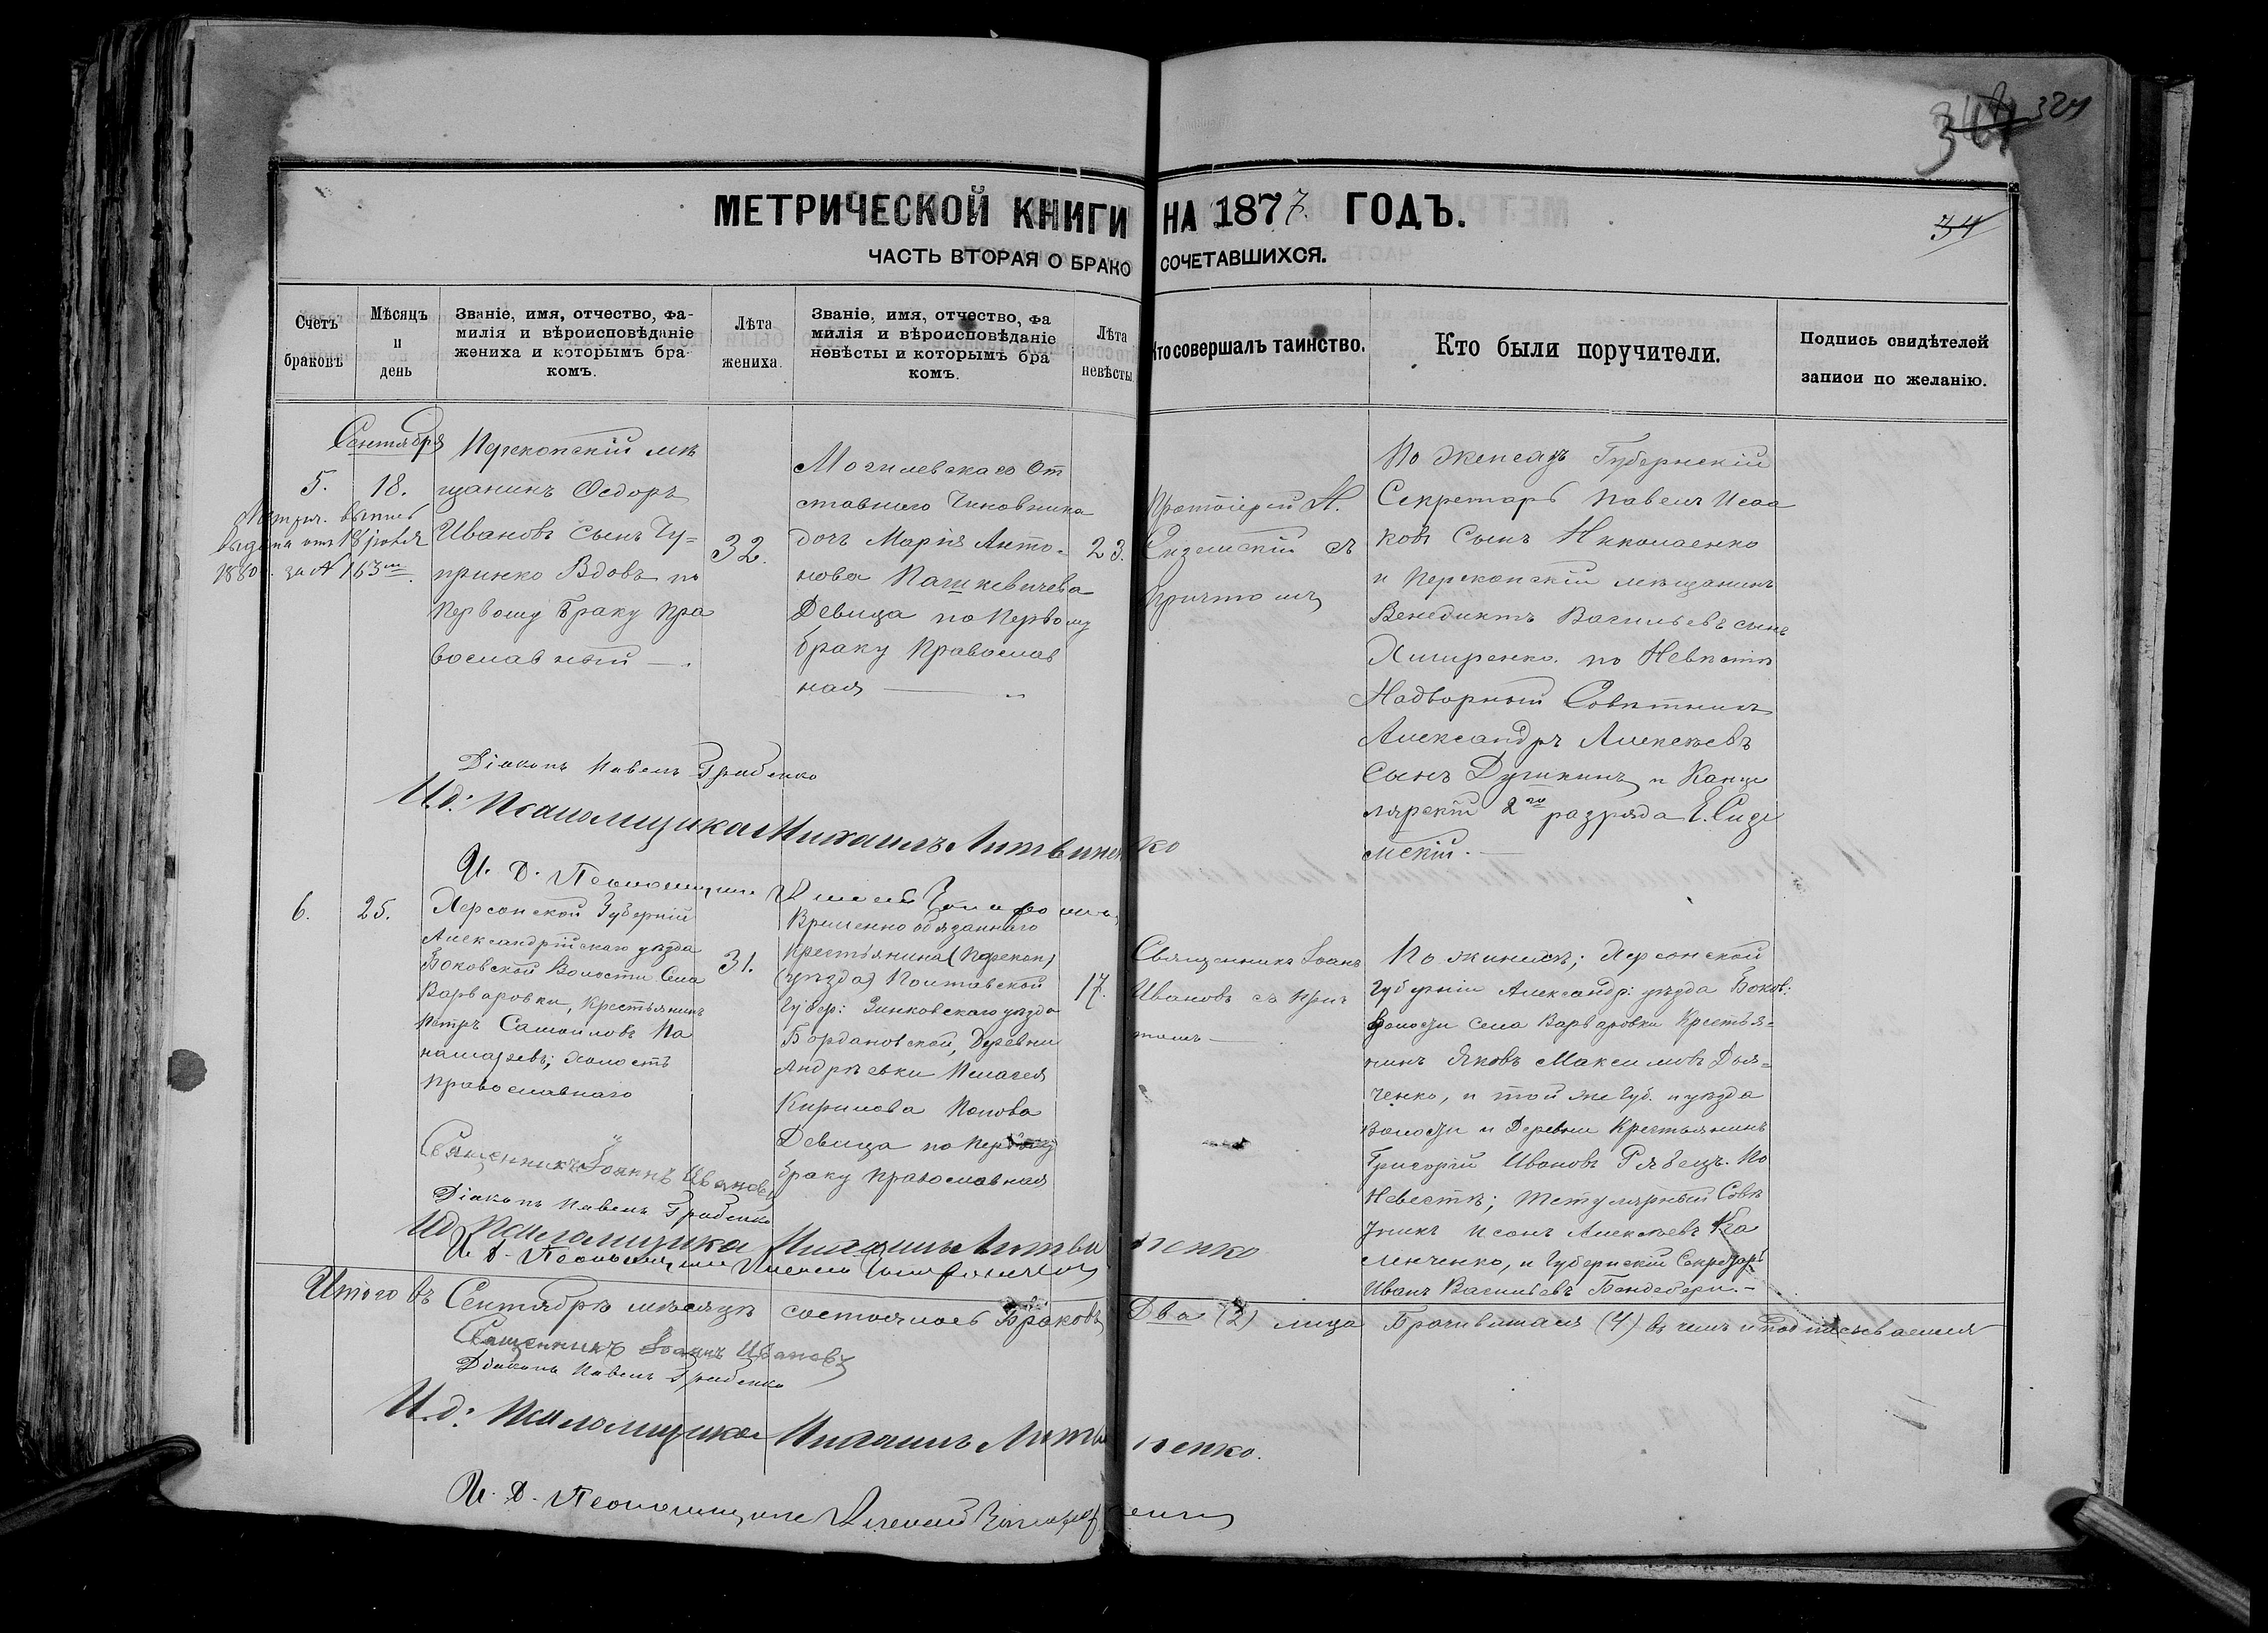 324
34
МЕТРИЧЕСКОЙ КНИГИ НА 1877 ГОДЪ.
ЧАСТЬ ВТОРАЯ О БРАКОСОЧЕТАВШИХСЯ.
Счетъ
браковъ
Мѣсяцъ
и
день
Званіе, имя, отчество, фа-
милія и вѣроисповѣданіе
жениха и которымъ бра-
комъ.
Лѣта
жениха.
Званіе, имя, отчество, фа
милія и вѣроисповѣданіе
невѣсты и которымъ бра
комъ.
Лѣта
невѣсты
Кто совершалъ таинство.
Кто были поручители.
Подпись свидѣтелей
записи по желанію.
Сентября
5.
18.
выдана 18 Іюля
1880 г. за № 163
Перекопскій мѣ
щанинъ Ѳедоръ
Ивановъ сынъ Чу=
принко Вдовъ по
первому браку пра
вославный
32.
Могилевскаго От
ставнаго Чиновника
дочь Марія Анто-
нова Пашкевичева
Девица по первому
браку православ
ная
23.
Протоіерей
съ
причтомъ
По женихѣ Губернскій
Секретарь Павелъ Исаа
ковъ сынъ Николаенко
и Перекопскій мѣщанинъ
Венедиктъ Васильевъ сынъ
по Невѣстѣ
Надворный Совѣтникъ
Александръ Алексѣевъ
сынъ Душкинъ и Канце
лярскій 2го разряда Е.
мскій.
Діаконъ Павелъ Грабенко
И.д: Псаломщика Михаилъ Литвиненко
И. Д. Псаломщика
6.
25.
Херсонской Губерніи
Александрійскаго уѣзда
Боковской Волости Села
Варваровки, крестьянинъ
Петръ Самойловъ По
номаревъ; холостъ
православнаго
31.
Временно обязаннаго
крестьянина (Перекоп)
(уѣзда) Полтавской
Губер: Зинковскаго уѣзда
Бордановской, Деревни
Андрѣевки Пелагея
Кирилова Попова
Девица по первому
браку православная
17.
Священникъ Іоаннъ
Ивановъ съ прич
томъ
По женихѣ; Херсонской
Губерніи Александр: уѣзда Боков:
волости села Варваровки Крестья=
нинъ Яковъ Максимовъ Дья=
ченко, и той же Губ. и уѣзда
Волости и Деревни Крестьянинъ
Григорій Ивановъ Рябецъ. По
Невестѣ; Титулярный Совѣ
тникъ Алексѣевъ
ленченко, и Губернскій Секретарь
Иванъ Васильевъ Бендебери.
Священникъ Іоаннъ Ивановъ
Діаконъ Павелъ Грабенко
И.д. Псаломщика Михаилъ Литвиненко
И. Д. Псаломщика
Итого въ Сентябрѣ мѣсяцѣ состоялось Браковъ Два (2) лица Брачившихся (4) въ чемъ и подписываемся
Священникъ Іоаннъ Ивановъ
Діаконъ Павелъ Грабенко
И.д: Псаломщика Михаилъ Литвиненко.
И. Д. Псаломщика